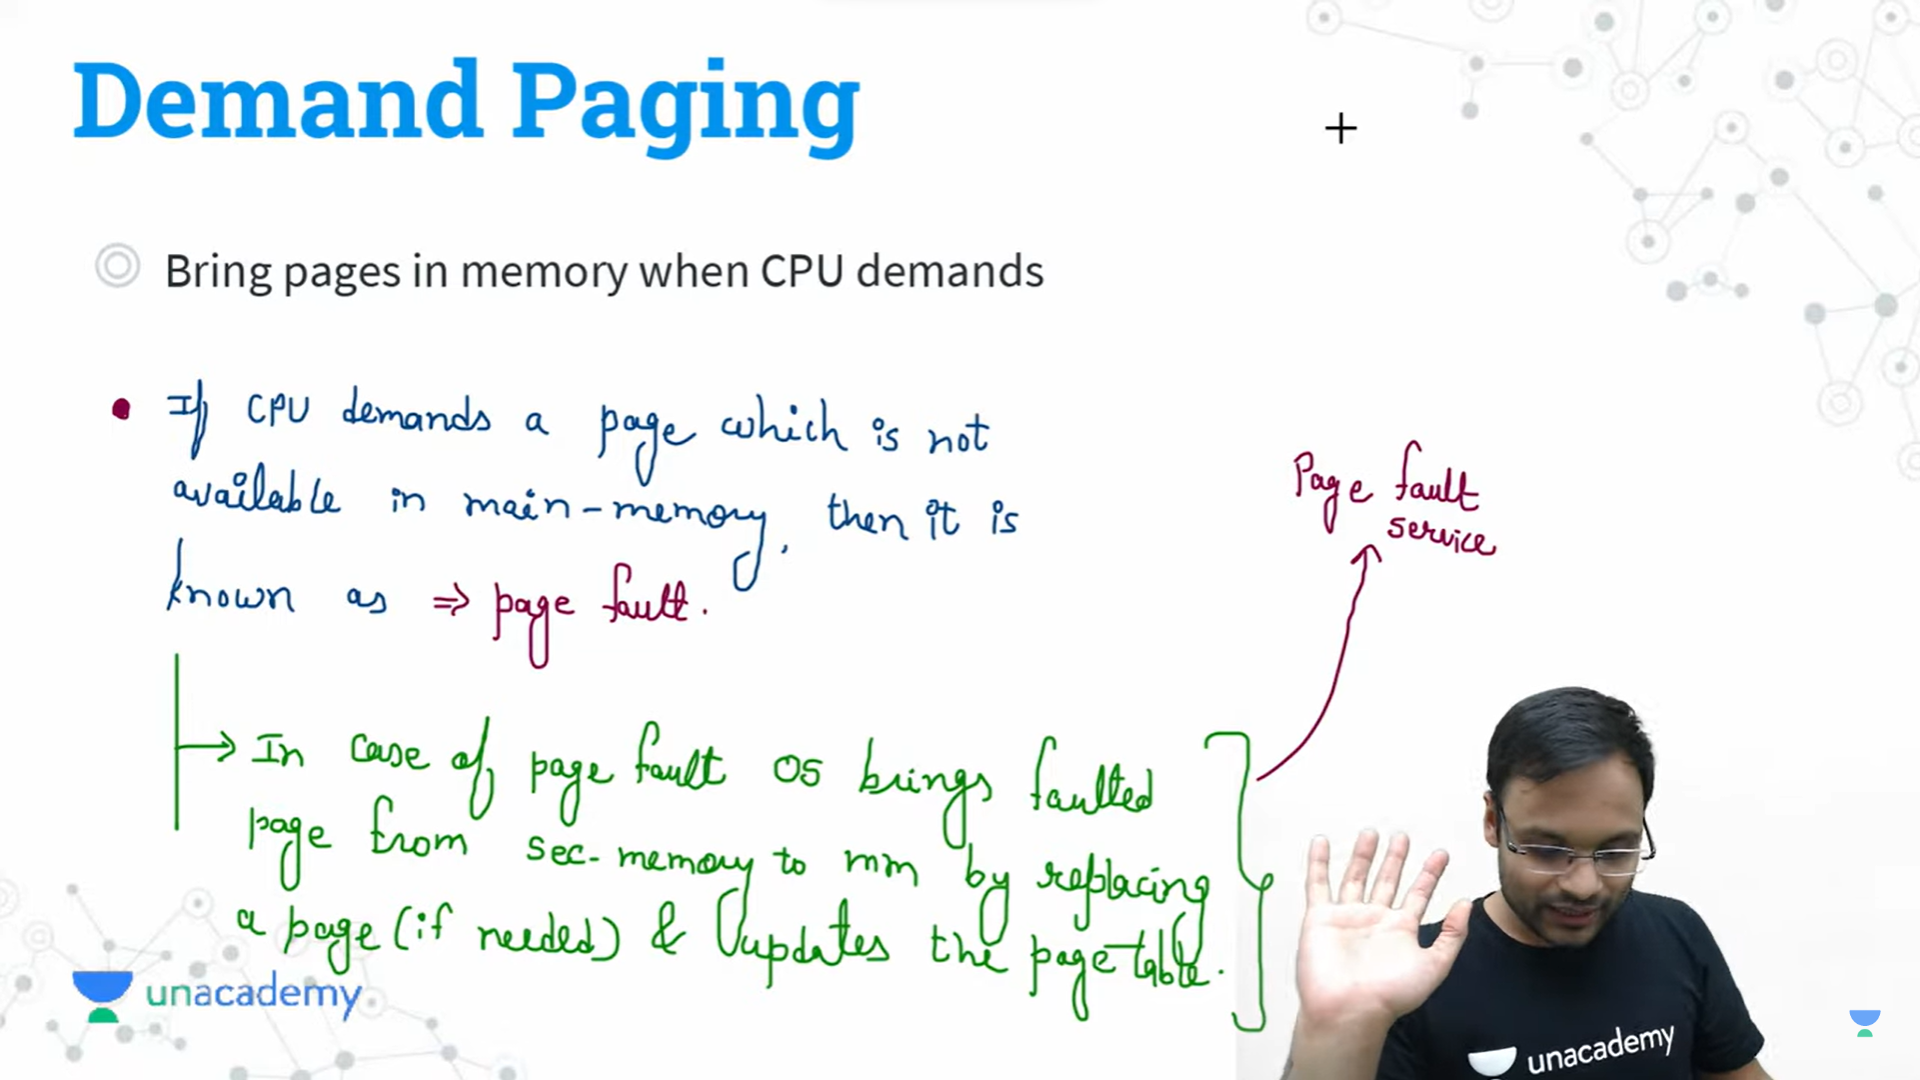 Demand Paging
Bring pages in memory when CPU demands
If CPU demands a page which is not
available in main-memory, then it is
known as ⇒ page fault.
Page fault
service
In case of page fault OS brings faulted
page from sec-memory to mm by replacing
a page (if needed) & updates the page table.
unacademy
unacademy